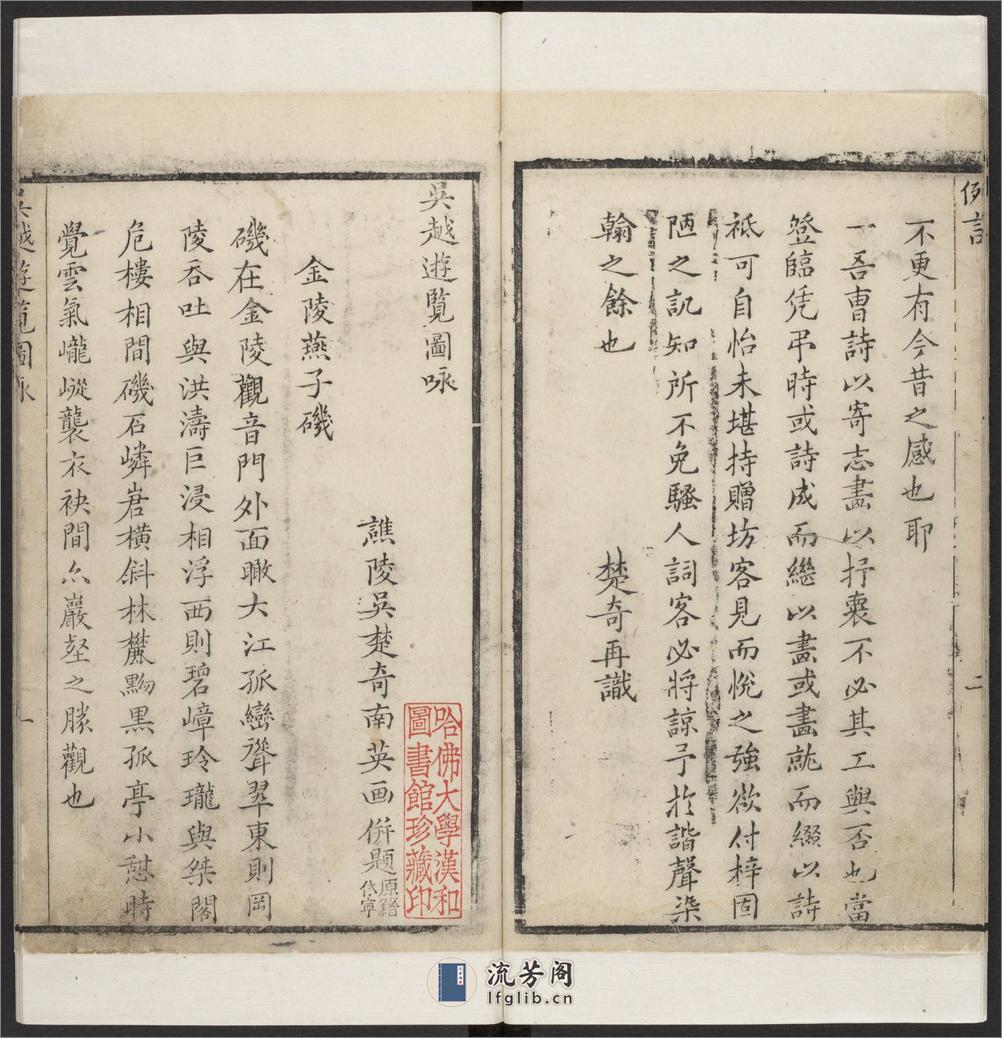 例言
不更有今昔之感也耶
一吾曹詩以寄志畫以抒褱不必其工與否也當
登臨凭弔時或詩成而繼以畫或畫就而綴以詩
祗可自怡未堪持贈坊客見而悅之強欲付梓固
陋之訊知所不免騷人詞客必將諒予於諧聲染
翰之餘也
楚奇再識
二
吳越遊覽圖咏
譙陵吳楚奇南英画併題原籍休寧
金陵燕子磯
磯在金陵觀音門外面瞰大江孤巒聳翠東則岡
陵吞吐與洪濤巨浸相浮西則碧嶂玲瓏與桀閣
危樓相間磯石嶙峋橫斜林麓黝黑孤亭小憇時
覺雲氣巄嵷襲衣袂間亦巖壑之勝觀也
吳越遊覽圖咏
一
哈佛大學漢和
圖書館珍藏印
流芳阁
lfglib.cn